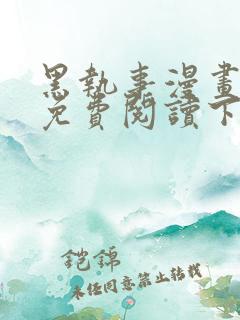 黑執事漫畫
免費閱讀下
鎧錦
未經同意禁止轉載